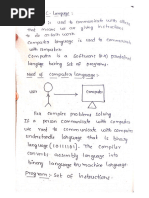 C - Language :-
is used to communicate with others
that means we are giving instructions
to do certain work.
Computer language is used to communicate
with computers
Computer is a Software (or) predefined
language having set of programs.
Need of computer language :-
user
computer
For complex problems solving
If a person communicate with computer
we need to communicate with computer
understands language that is binary
language (1011101). The compiler
converts assembly language into
binary language (or) machine language.
Program :- Set of instructions.